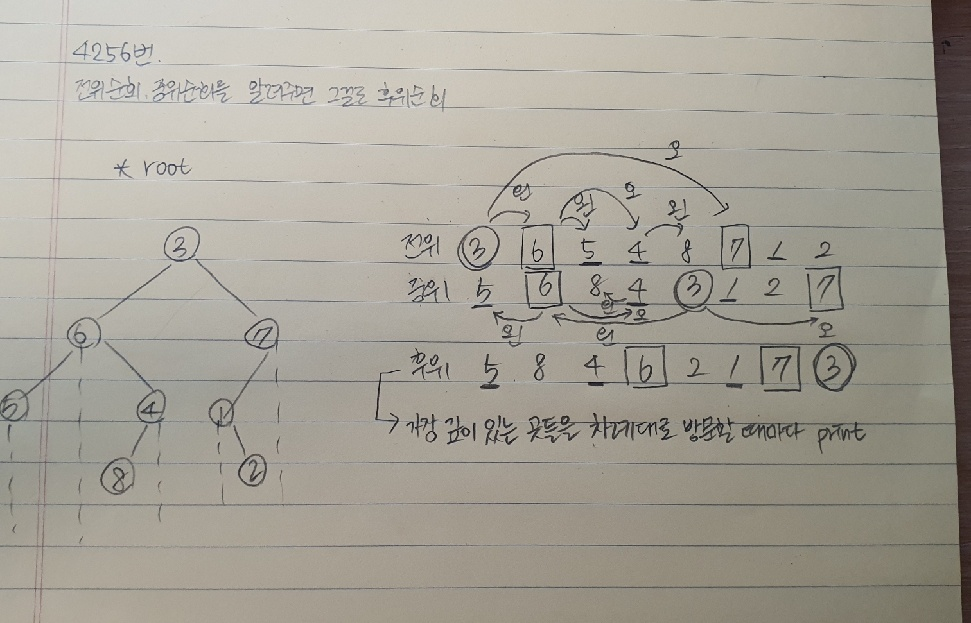 4256번.
전위순회, 중위순회를 알려주면 그걸로 후위순회
* root
오
왼 왼 오 왼
전위 3 6 5 4 8 7 1 2
중위 5 6 8 4 3 1 2 7
왼 오
왼 왼 오
후위 5 8 4 6 2 1 7 3
→ 가장 깊이 있는 곳들을 차례대로 방문할 때마다 print
3
6 7
5 4 1
8 2